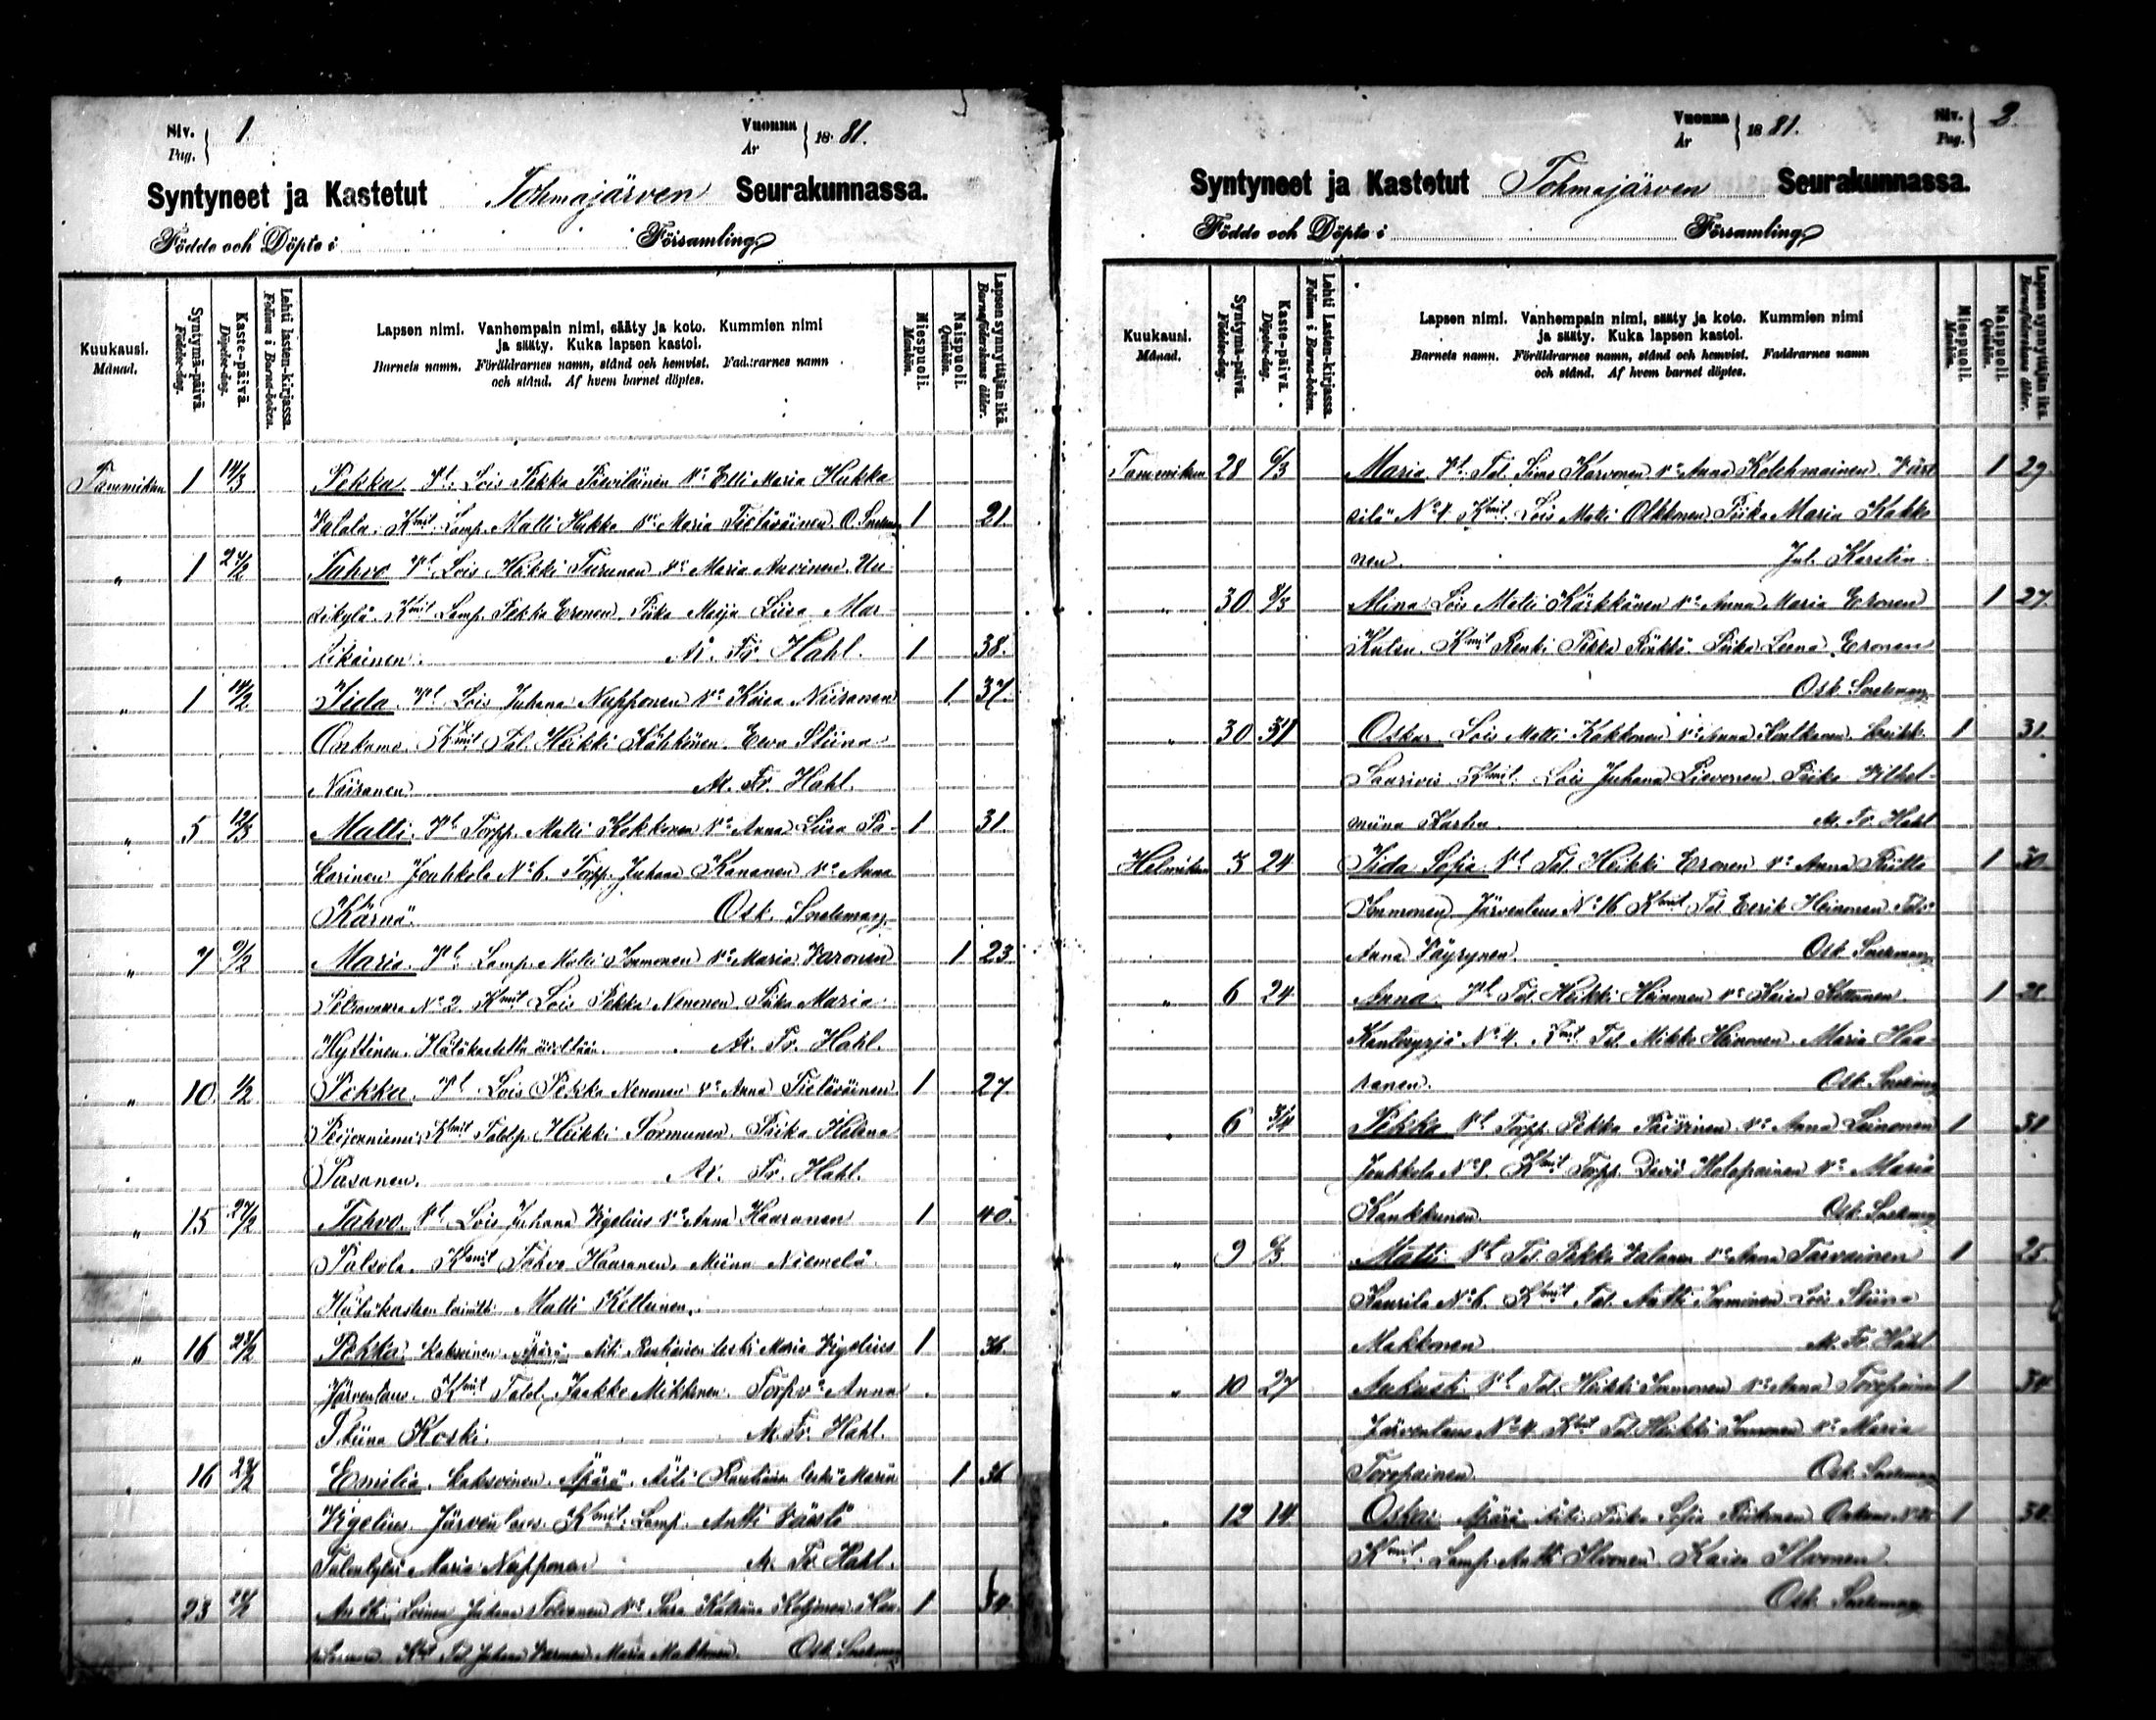 Siv.
Pag. 1.
Vuonna
År 1881.
Syntyneet ja Kastetut Tohmajärven Seurakunnassa.
Födde och Döpte i Församling
Kuukausi.
Månad.
Syntymä-päivä.
Födelse-dag.
Kaste-päivä.
Döpelse-dag.
Lehti lasten-kirjassa.
Folium i Barna-boken.
Lapsen nimi. Vanhempain nimi, sääty ja koto. Kummien nimi
ja sääty. Kuka lapsen kastoi.
Barnets namn. Föräldrarnes namn, stånd och hemvist. Faddrarnes namn
och stånd. Af hvem barnet döptes.
Miespuoli.
Mankön.
Naispuoli.
Qvinkön.
Lapsen synnyttäjän ikä.
Barnaföderskans ålder.
Tammikuu 1 14/3 Pekka. Lois Pekka Päiviläinen Elli Maria Hukka
Valala. Kmit Lamp. Matti Hukka Maria Tietäväinen O. 1 21
„ 1 24/2 Tahvo Lois Heikki Turunen Maria Anvinen. Uu
sikylä. Kmit Lamp. Pekka Eronen. Piika Maija Liisa Mar
tikainen. A. Fr. Hahl. 1 38.
„ 1 14/2 Iida. Lois Juhana Nupponen Kaisa Niiranen 1 37.
Onkamo. Kmit Tal. Heikki Kähkönen. Ewa Stiina
Niiranen A. Fr. Hahl.
„ 5 12/3 Matti. Torpp. Matti Kakkonen Anna Liisa Pa- 1 31.
karinen Jouhkola No 6. Torpp. Juhana Kananen Anna
Kärnä. Osk. Snelman
„ 7 9/2 Maria. Lamp. Matti Immonen Maria Varonen 1 23.
No 2. Kmit Lois Pekka Nenonen. Piika Maria
Hyttinen. Hätäkastettu A. Fr. Hahl.
„ 10 1/2 Pekka. Lois Pekka Nenonen Anna Tietäväinen 1 27.
Peijonniemi Kmit Heikki Tormunen. Piika Helena
Pasanen. A. Fr. Hahl.
„ 15 27/2 Tahvo. Lois Juhana Vigelius Anna Haaranen 1 40.
Palsola. Kmit Tahvo Haaranen. Miina Niemelä.
Hätäkasteen toimitti Matti Kettunen.
„ 16 23/2 Pekka. kaksoinen Äpärä. Äiti leski Maria Vigelius 1 36
Järventaus. Kmit Talol. Jaakko Mikkonen. Torp Anna
Stiina Koski. A. Fr. Hahl.
„ 16 23/2 Emilia. kaksoinen. Äpärä. Äiti leski Maria 1 36
Vigelius. Järventaus. Kmit. Lamp. Antti Väistö
Maria Nupponen A. Fr. Hahl.
„ 23 Antti. Loinen Juhana Tolvanen Sara Katrina 1 34.
Kmit Tal. Juhana Maria Makkonen. Osk. Snelman
Vuonna
År 1881.
Siv.
Pag. 2.
Syntyneet ja Kastetut Tohmajärven Seurakunnassa.
Födde och Döpte i Församling
Kuukausi.
Månad.
Syntymä-päivä.
Födelse-dag.
Kaste-päivä.
Döpelse-dag.
Lehti Lasten-kirjassa.
Folium i Barna-boken.
Lapsen nimi. Vanhempain nimi, sääty ja koto. Kummien nimi
ja sääty. Kuka lapsen kastoi.
Barnets namn. Föräldrarnes namn, stånd och hemvist. Faddrarnes namn
och stånd. Af hvem barnet döptes.
Miespuoli.
Mankön.
Naispuoli.
Qvinkön.
Lapsen synnyttäjän ikä.
Barnaföderskans ålder.
Tammikuu 28 6/3 Maria. Tal. Simo Karvonen Anna Kolehmainen. Värt 1 29.
silä No 4. Kmit. Lois Matti Olkkonen. Piika Maria Kakko
nen. Jul. Karstin
„ 30 Alina Lois Matti Kärkkänen Anna Maria Eronen 1 27.
Kutsu. Kmit Renki Pekka Piika Leena Eronen
Osk. Snelman
„ 30 31 Oskar. Lois Matti Kakkonen Anna 1 31.
Kmit. Lois Juhana Piika Vilhel-
miina Karhu A. Fr. Hahl
Helmikuu 3 24 Iida Sofia. Tal. Heikki Eronen Anna Riitta 1 30.
Immonen Järventaus No 16 Kmit Tal Eerik Heinonen
Anna Väyrynen. Osk. Snelman
„ 6 24 Anna. Tal. Heikki Heinonen Kaisa Kettunen. 1 28.
Kantosyrjä No 4. Kmit. Tal. Mikko Heinonen. Maria Haa-
ranen. Osk. Snelman
„ 6 3/4 Pekka Torpp. Pekka Päivinen Anna Leinonen 1 31
Jouhkola No 8. Kmit Torpp. David Holopainen Maria
Kankkunen. Osk. Snelman
„ 9 6/3 Matti. Tal. Pekka Valanen Anna Tarvainen 1 25.
Kaurila No 6. Kmit Tal. Antti Immonen Lois Stiina
Makkonen A. Fr. Hahl
„ 10 27 Aukusti. Tal. Heikki Immonen Anna 1 34.
Järventaus No 4 Kmit Tal. Heikki Immonen Maria
Osk. Snelman
„ 12 14 Oskar. Äpärä Äiti Piika Sofia 1 30.
Kmit. Lamp. Antti Ilvonen. Kaisa Ilvonen
Osk. Snelman